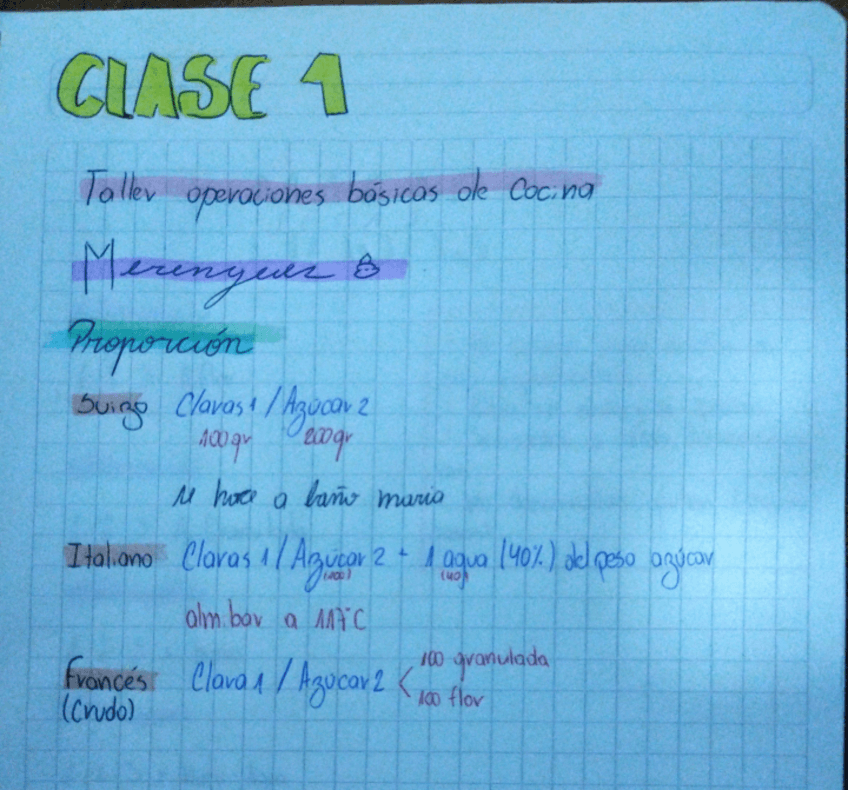 CLASE 1
Taller operaciones básicas de Cocina
Merengues
Proporción
Suizo Claras 1 / Azúcar 2
100gr 200gr
se hace a baño maria
Italiano Claras 1 / Azúcar 2 + 1 agua (40%) del peso azúcar
(100) (40)
almibar a 117°C
Francés Clara 1 / Azúcar 2 < 100 granulada
100 flor
(Crudo)